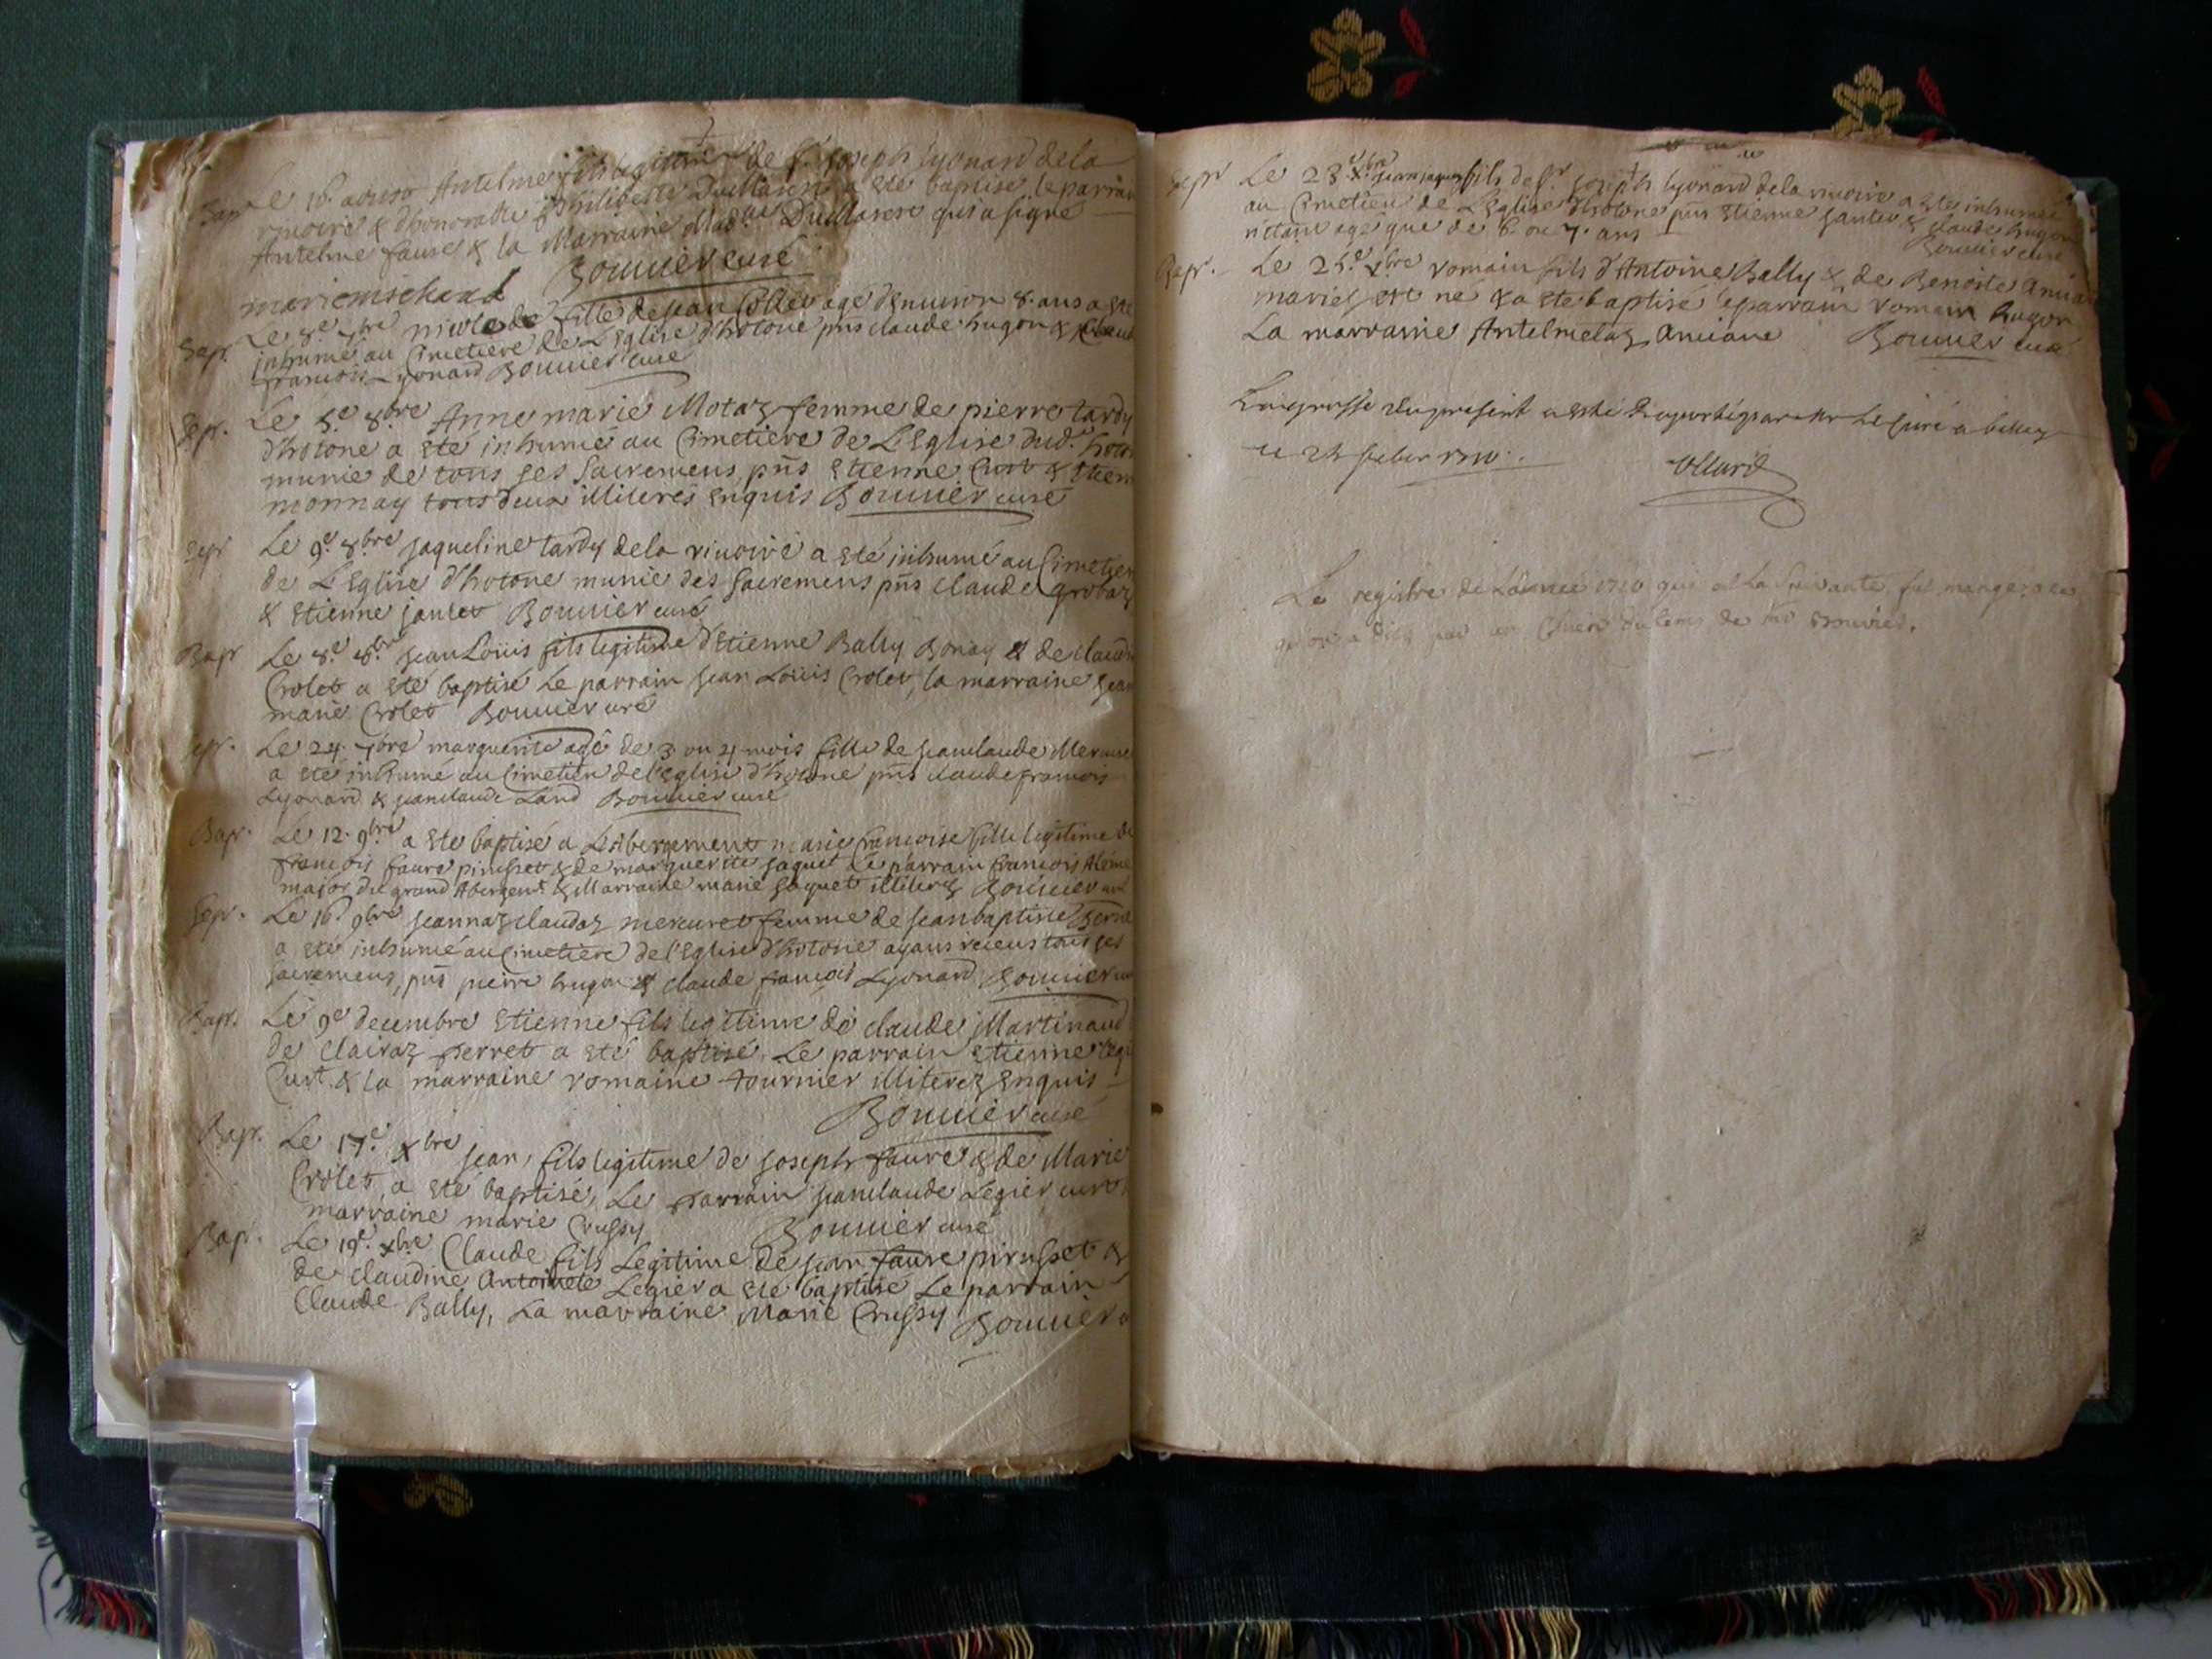 Bap. Le 16. aoust Antelme fils legitime de sr. joseph lyonard de la
rivoire & d'honorable philiberte Duillaresc a eté baptisé, le parrain
Antelme faure & la Marraine Mad.lle Duillaresc qui a signé
mariemichard Bouvier curé
Sep. Le 8e 7bre nicolede fille de jean Collet agé d'environ 8. ans a eté
inhumé au Cimetiere de L'Eglise d'hotone pns claude hugon &
francois Lyonard Bouvier curé
Sep. Le 5.e 8bre Anne marie Motaz femme de pierre tardy
d'hotone a eté inhumé au Cimetiere de L'Eglise dud.t hoton
munie de tous ses Sacremens, pns Etienne Curt & Etien
monnay tous deux illiterés Enquis Bouvier curé
Sep. Le 9.e 8bre jaqueline tardy de la rivoire a eté inhumé au Cimetier
de L'Eglise d'hotone munie des Sacremens pns claude grobaz
& Etienne jantet Bouvier curé
Bap. Le 8.e 8.bre jean Loüis fils legitime d'Etienne Bally Bonay & de claudi
Crolet a eté baptisé Le parrain jean Loüis Crolet, la marraine jean
marie Crolet Bouvier curé
Sep. Le 24. 7bre marguerite agé de 3 ou 4 mois fille de jeanclaude Mercuret
a eté inhumé au Cimetiere de l'eglise d'hotone pns claude francois
Lyonard & jeanclaude Land Bouvier curé
Bap. Le 12. 9bre a eté baptisé a L'Abergement marie francoise fille legitime de
francois faure pirusset & de marguerite jaquet Le parrain francois
major du grand Abergemt. & Marraine marie jaquet illiterez Bouvier curé
Sep. Le 16. 9bre jeannaz claudaz mercuret femme de jean baptiste
a eté inhumé au Cimetiere de l'Eglise d'hotone ayans receus tous ses
sacremens, pns pierre hugon & claude francois Lyonard Bouvier cu
Bap. Le 9e decembre Etienne fils legitime de claude Martinaud
de Clairaz perret a eté baptisé. Le parrain Etienne legi
Curt. & la marraine romaine tournier illiterez Enquis
Bouvier curé
Bap. Le 17.e xbre jean, fils legitime de joseph faure & de Marie
Crolet, a eté baptisé, Le parrain jeanclaude Legier curt
marraine marie Crussy Bouvier curé
Bap. Le 19e. xbre Claude fils Legitime de jean faure pirusset &
de claudine Antoinete Legier a eté baptisé Le parrain
Claude Bally, La marraine Marie Crussy Bouvier c
Sepr Le 23e xbre jeanjaques fils de sr. joseph lyonard de la rivoire a eté inhumé
au Cimetiere de L'Eglise d'hotone pns Etienne jantet & claude hugon
n'etant agé que de 6. ou 7. ans Bouvier curé
Bap. Le 25.e xbre romain fils d'Antoine Bally & de Benoite Aniian
mariez est né & a eté baptisé le parrain romain hugon
La marraine Antelmetaz Aniiane Bouvier curé
La grosse du present a esté Raportée par Mr Le Curé a belley
Le registre de L'année 1710 qui est La suivante fut mangé
par un Chien du tems de Mr Bouvier.